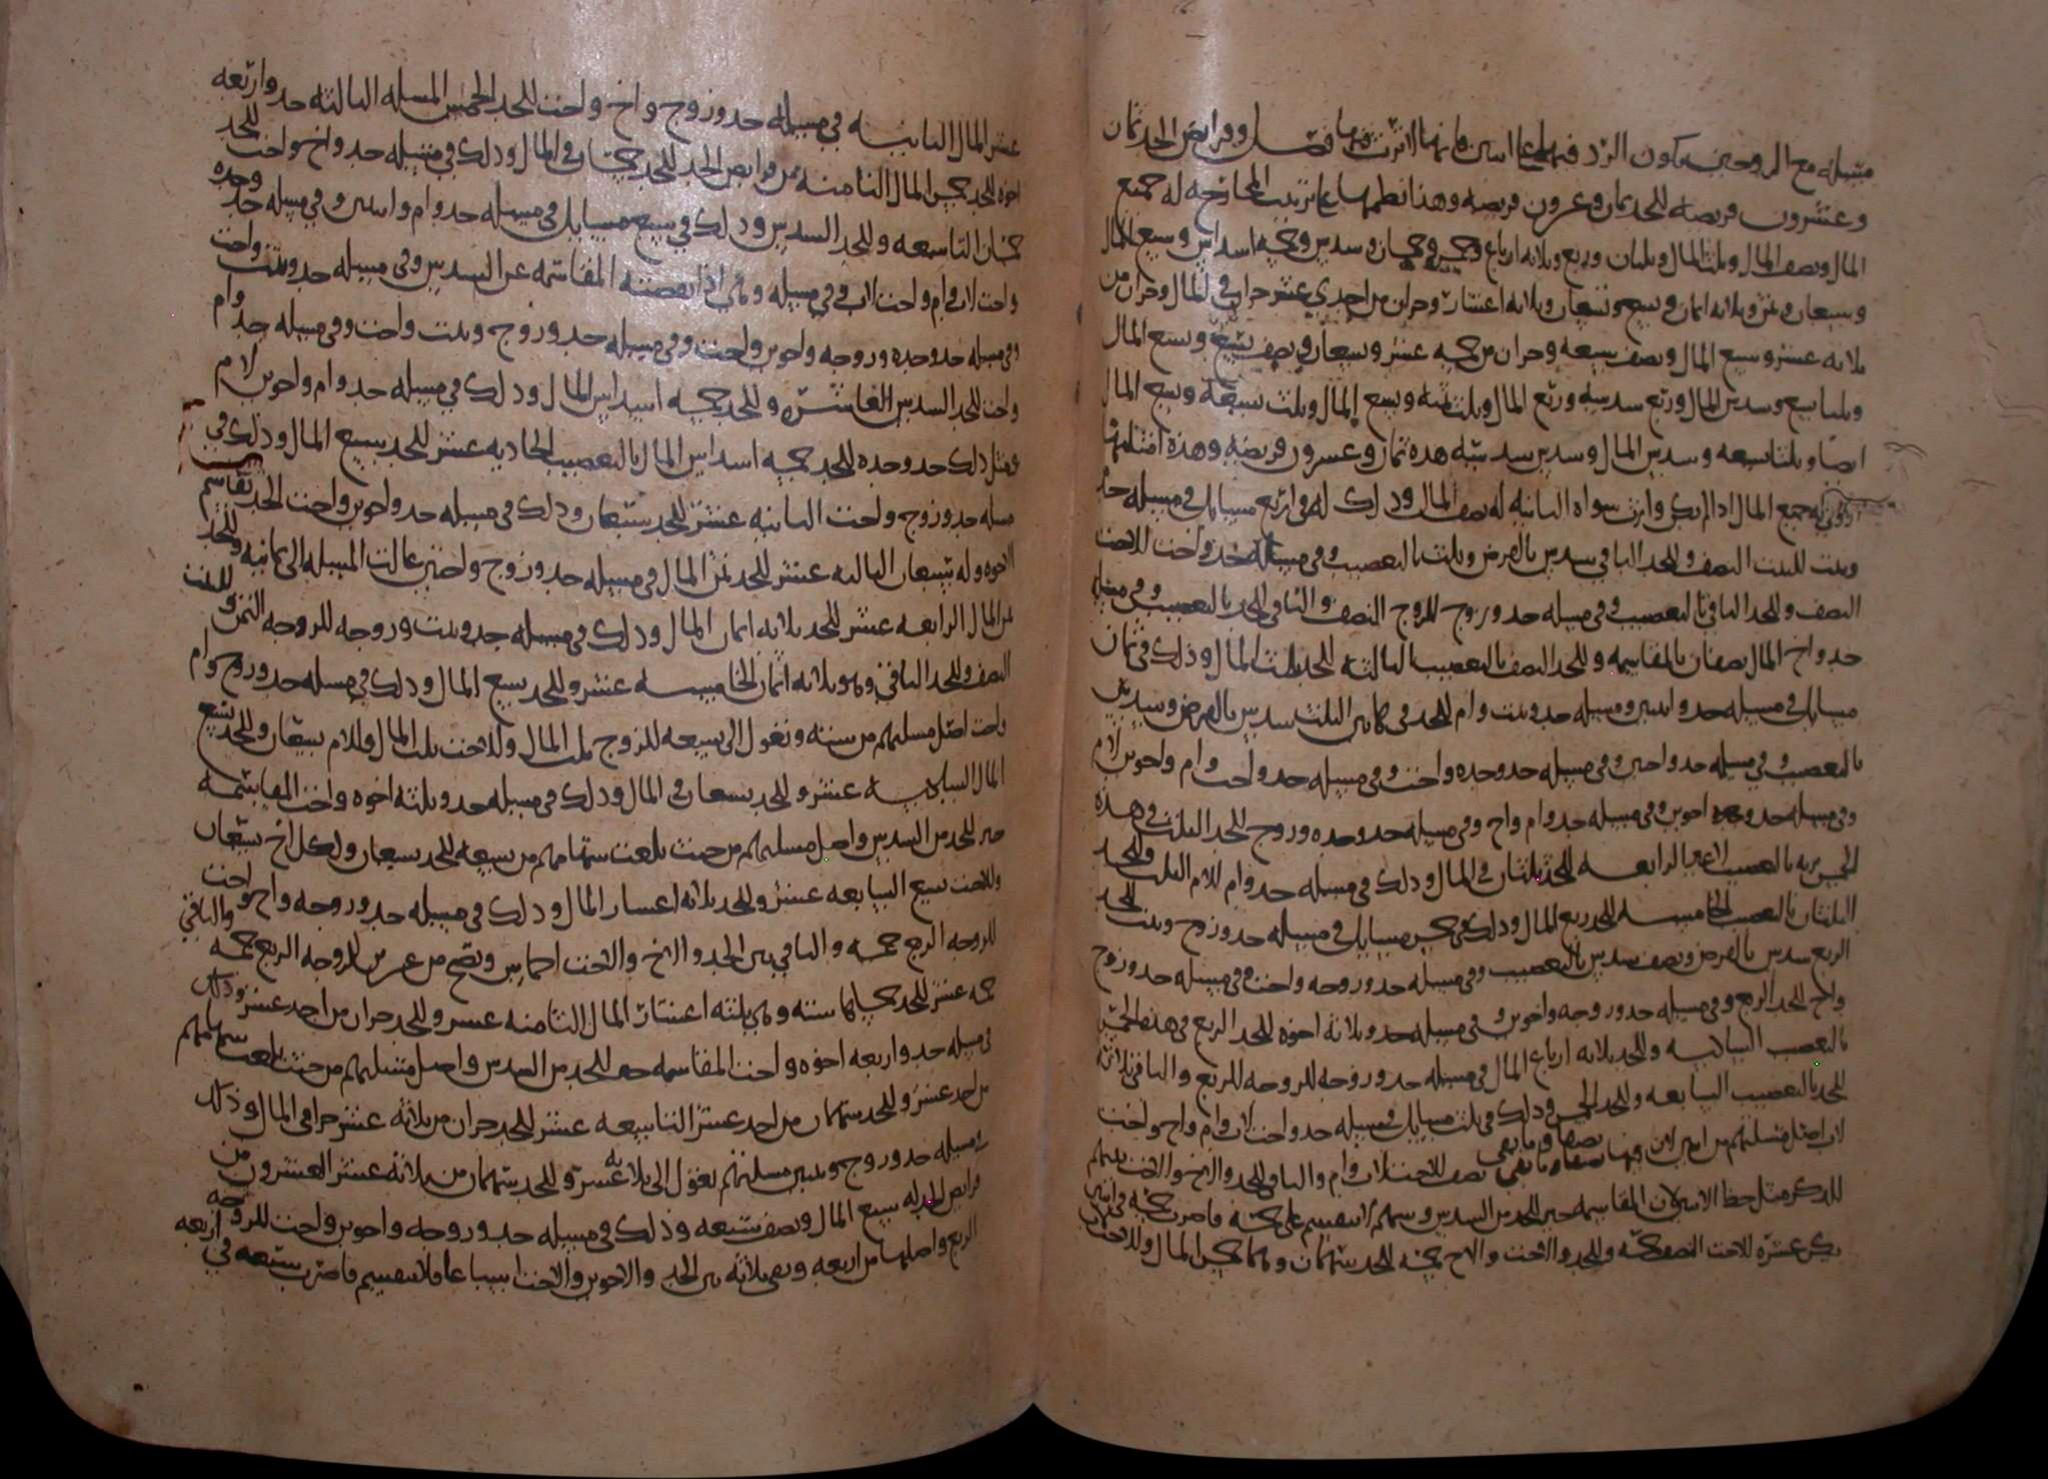 مسله مع الزوجين يكون الرد فيها على اثنين فانها لا ترث فيها فصل وفرايض الجد ثمان
وعشرون فريضه للجد ثمان وعشرون فريضه وهذا نظمها على ترتيب المخارجه له جميع
المال ونصف المال وثلث المال وثلثان وربع وثلاثه ارباع وخمس وخمسان وسدس وخمسه اسداس وسبع المال
وسبعان وثمن وثلاثه اثمان وتسع وتسعان وثلاثه اعشار وجزان من احدي عشر جزا في المال وجزان من
ثلاثه عشر وسبع المال ونصف سبعه وجزان من خمسه عشر وتسعان ونصف تسع وتسع المال
وثلثا تسع وسدس المال وربع سدسه وربع المال وثلث ثمنه وتسع المال وثلث تسعه وسبع المال
ايضا وثلثا سبعه وسدس المال وسدس سدسه هذه ثمان وعشرون فريضه وهذه امثلتها
الاولي له جميع المال اذا لم يكن وارث سواه الثانيه له نصف المال وذلك له في اربع مسايل في مسله جد
وبنت للبنت النصف وللجد الباقي سدس بالفرض وثلث بالتعصيب وفي مسله جد واخت للاخت
النصف وللجد الباقي بالتعصيب وفي مسله جد وزوج للزوج النصف والباقي للجد بالتعصيب وفي مسله
جد واخ المال نصفان بالمقاسمه وللجد النصف بالتعصيب الثالثه للجد ثلث المال وذلك في ثمان
مسايل في مسله جد وابنتين ومسله جد وبنت وام للجد في هاتين الثلث سدس بالفرض وسدس
بالتعصيب وفي مسله جد واخين وفي مسله جد وجده واخت وفي مسله جد واخت وام واخوين لام
وفي مسله جد وجده اخوين وفي مسله جد وام واخ وفي مسله جد وجده وزوج للجد الثلث في هذه
بالتعصيب الرابعه للجد ثلثان في المال وذلك في مسله جد وام للام الثلث وللجد
الثلثان بالتعصيب الخامسه للجد ربع المال وذلك في خمس مسايل في مسله جد وزوج وبنت للجد
الربع سدس بالفرض ونصف سدس بالتعصيب وفي مسله جد وزوجه واخت وفي مسله جد وزوج
واخ للجد الربع وفي مسله جد وزوجه واخوين وفي مسله جد وثلاثه اخوه للجد الربع في هذه الخمس
بالتعصيب السادسه وللجد ثلاثه ارباع المال في مسله جد وزوجه للزوجه الربع والباقي ثلاثه
للجد بالتعصيب السابعه وللجد الخمس وذلك في ثلث مسايل في مسله جد واخت لاب وام واخ واخت
لاب اصل مسلتهم من اثنين لان فيها نصفا وما بقي نصف للاخت لاب وام والباقي للجد والاخ والاخت بينهم
للذكر مثل حظ الانثيين لان المقاسمه خير للجد من السدس وسهم لا ينقسم على خمسه فاضرب خمسه في اثنين
يكن عشره للاخت النصف خمسه وللجد والاخت والاخ خمسه للجد سهمان وهما خمس المال وللاخت
عشر المال الثانيه في مسله جد وزوج واخ واخت للجد الخمس المسله الثالثه جد واربعه
اخوه للجد خمس المال الثامنه من فرايض الجد للجد خمسان في المال وذلك في مسله جد واخ واخت للجد
خمسان التاسعه وللجد السدس وذلك في سبع مسايل في مسله جد وام وابنتين وفي مسله جد وجده
واخت لاب وام واخت لاب وفي مسله وما في اذا نقصته المقاسمه عن السدس وفي مسله جد وبنت واخت
وفي مسله جد وجده وزوجه واخوين واخت وفي مسله جد وزوجه وبنت واخت وفي مسله جد وام
واخت للجد السدس العاشره وللجد خمسه اسداس المال وذلك في مسله جد وام واخوين لام
ومثل ذلك جد وجده للجد خمسه اسداس المال بالتعصيب الحاديه عشر للجد سبع المال وذلك في
مسله جد وزوج واخت الثانيه عشر للجد سبعان وذلك في مسله جد واخوين واخت الجد يقاسم
الاخوه وله سبعان الثالثه عشر للجد ثمن المال في مسله جد وزوج واختين عالت المسله الى ثمانيه وللجد
ثمن المال الرابعه عشر للجد ثلاثه اثمان المال وذلك في مسله جد وبنت وزوجه للزوجه الثمن وللبنت
النصف وللجد الباقي وهو ثلاثه اثمان الخامسه عشر وللجد تسع المال وذلك في مسله جد وزوج وام
واخت اصل مسلتهم من سته وتعول الى تسعه للزوج ثلث المال وللاخت ثلث المال وللام تسعان وللجد تسع
المال السادسه عشر وللجد تسعان في المال وذلك في مسله جد وثلثه اخوه واخت المقاسمه
خير للجد من السدس واصل مسلتهم من حيث بلغت سهامهم من تسعه للجد تسعان ولكل اخ تسعان
وللاخت تسع السابعه عشر وللجد ثلاثه اعشار المال وذلك في مسله جد وزوجه واخ واخت
للزوجه الربع خمسه والباقي بين الجد والاخ والاخت اخماس وتصح من عشرين للزوجه الربع خمسه والباقي
خمسه عشر للجد خمساها سته وهي ثلثه اعشار المال الثامنه عشر وللجد جزان من احد عشر وذلك
في مسله جد واربعه اخوه واخت المقاسمه خير للجد من السدس واصل مسلتهم من حيث بلغت سهامهم
من احد عشر وللجد سهمان من احد عشر التاسعه عشر للجد جزان من ثلاثه عشر جزا في المال وذلك
في مسله جد وزوج وبنتين مسلتهم تعول الى ثلاثه عشر وللجد سهمان من ثلاثه عشر العشرون من
فرايض الجد له سبع المال ونصف سبعه وذلك في مسله جد وزوجه واخوين واخت للزوجه
الربع واصلها من اربعه وبقي ثلاثه بين الجد والاخوين والاخت اسباعا فلا ينقسم فاضرب سبعه في اربعه